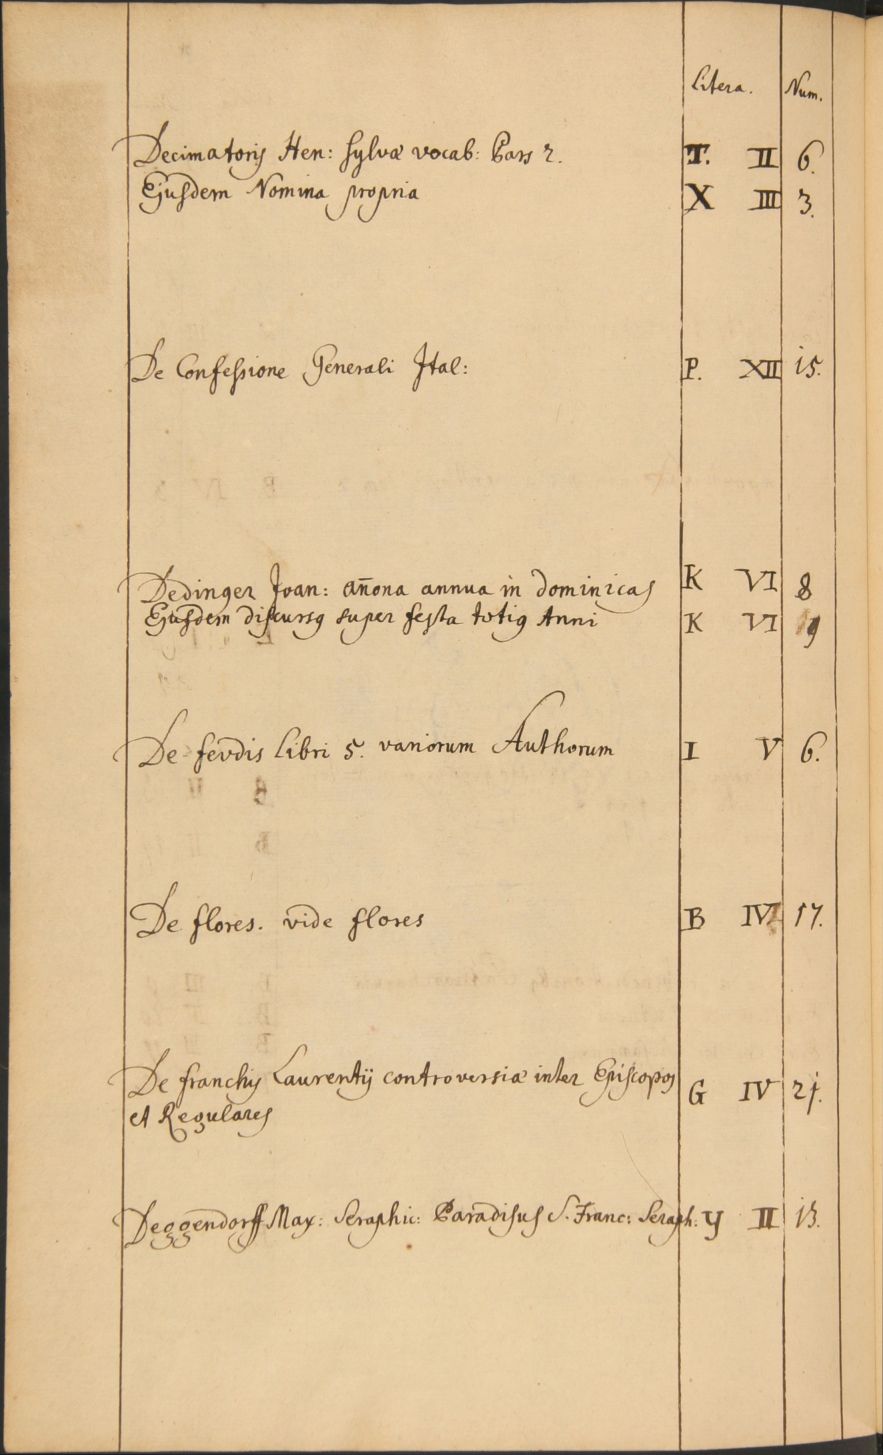 Litera. Num.
Decimatoris Hen: sylvæ vocab: Pars 2. T. II 6.
Ejusdem Nomina propria X III 3.
De Confessione Generali Ital: P. XII 15.
Dedinger Joan: añona annua in dominicas K VI 8
Ejusdem discursꝯ super festa totiꝯ Anni K VI 9
De fevdis Libri 5. variorum Authorum I V 6.
De flores. vide flores B IV 17.
De franchis Laurentij controversiæ inter Episcopos
et Regulares G IV 21.
Deggendorff Max: Seraphic: Paradisus S. Franc: Seraph: Y II 13.